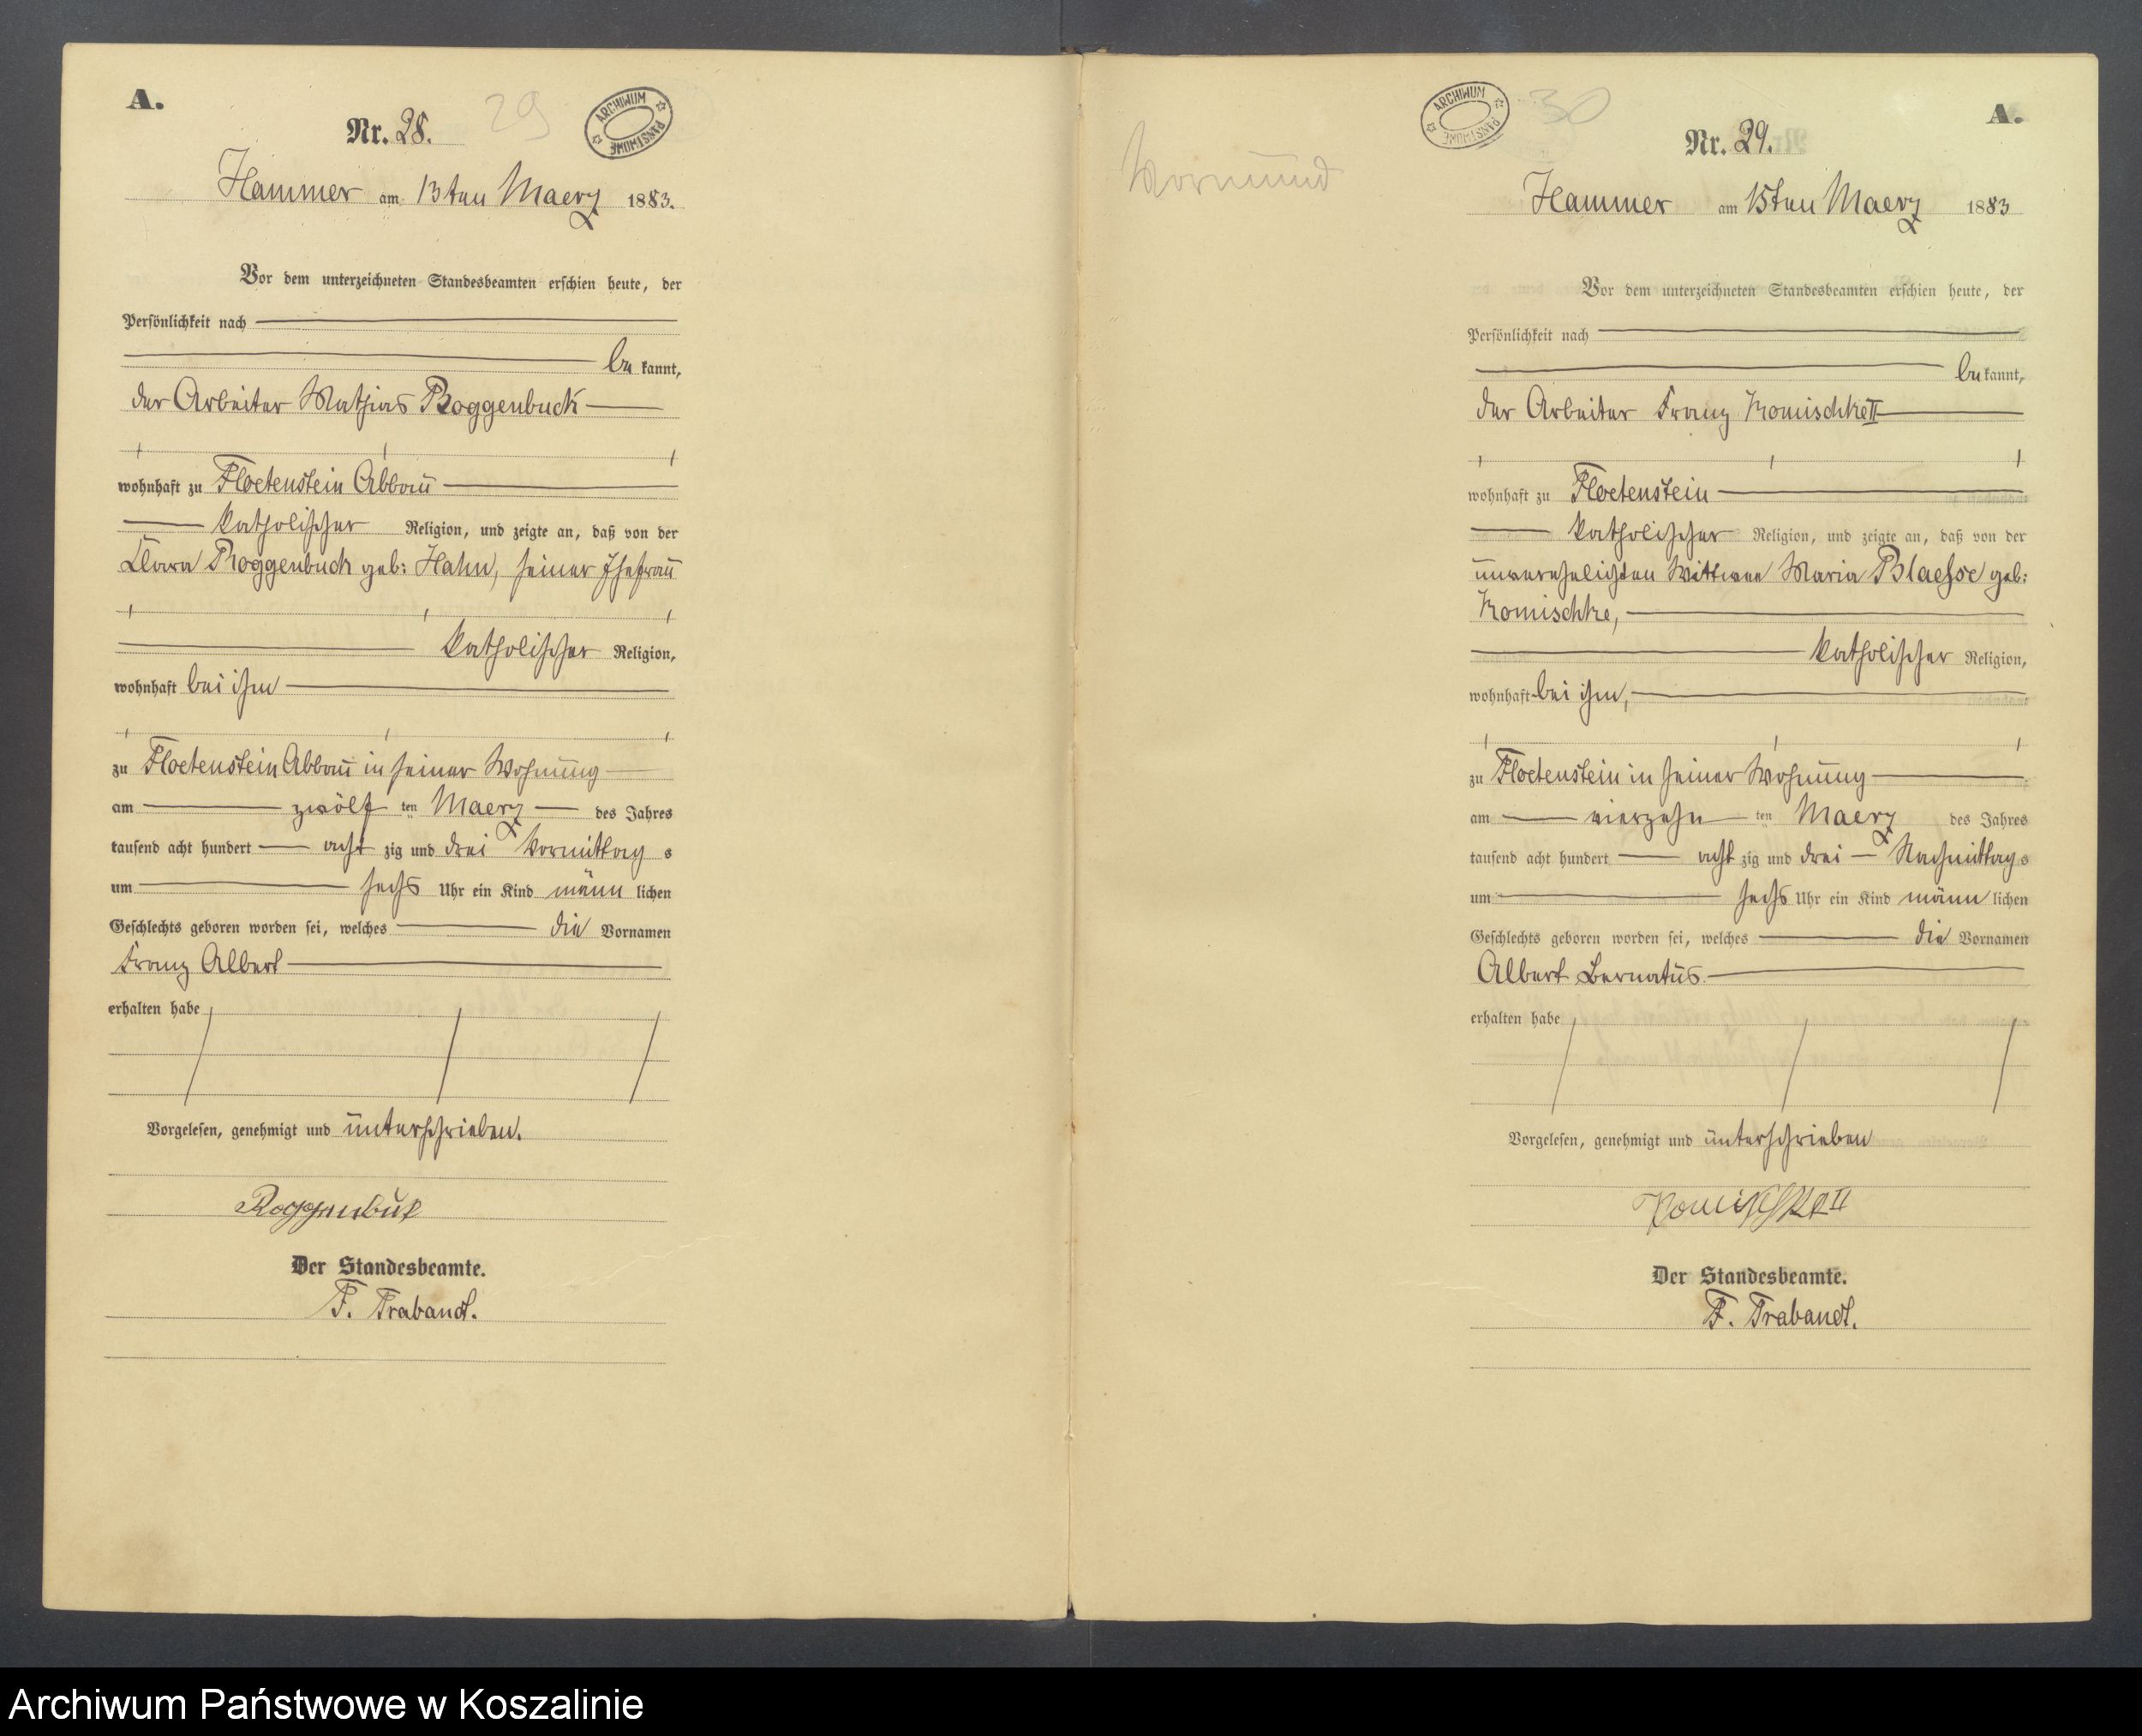 A.
29
ARCHIWUM PAŃSTWOWE
Nr. 28.
Hammer am 13ten Maerz 1883.
Vor dem unterzeichneten Standesbeamten erschien heute, der
Persönlichkeit nach
be kannt,
der Arbeiter Mathias Roggenbuck
wohnhaft zu Floetenstein Abbau
katholischer Religion, und zeigte an, daß von der
Clara Roggenbuck geb: Hahn, seiner Ehefrau
katholischer Religion,
wohnhaft bei ihm
zu Floetenstein Abbau in seiner Wohnung
am zwölf ten Maerz des Jahres
tausend acht hundert acht zig und drei Vormittag s
um sechs Uhr ein Kind männ lichen
Geschlechts geboren worden sei, welches die Vornamen
Franz Albert
erhalten habe
Vorgelesen, genehmigt und unterschrieben.
Roggenbuk
Der Standesbeamte.
F. Trabandt.
Vormund
ARCHIWUM PAŃSTWOWE
30
A.
Nr. 29.
Hammer am 15ten Maerz 1883
Vor dem unterzeichneten Standesbeamten erschien heute, der
Persönlichkeit nach
be kannt,
der Arbeiter Franz Komischke II
wohnhaft zu Floetenstein
katholischer Religion, und zeigte an, daß von der
unverehelichten Wittwe Maria Blaesse geb:
Komischke,
katholischer Religion,
wohnhaft bei ihm,
zu Floetenstein in seiner Wohnung
am vierzehn ten Maerz des Jahres
tausend acht hundert acht zig und drei Nachmittag s
um sechs Uhr ein Kind männ lichen
Geschlechts geboren worden sei, welches die Vornamen
Albert Bernatus
erhalten habe
Vorgelesen, genehmigt und unterschrieben
Komischke II
Der Standesbeamte.
F. Trabandt.
Archiwum Państwowe w Koszalinie